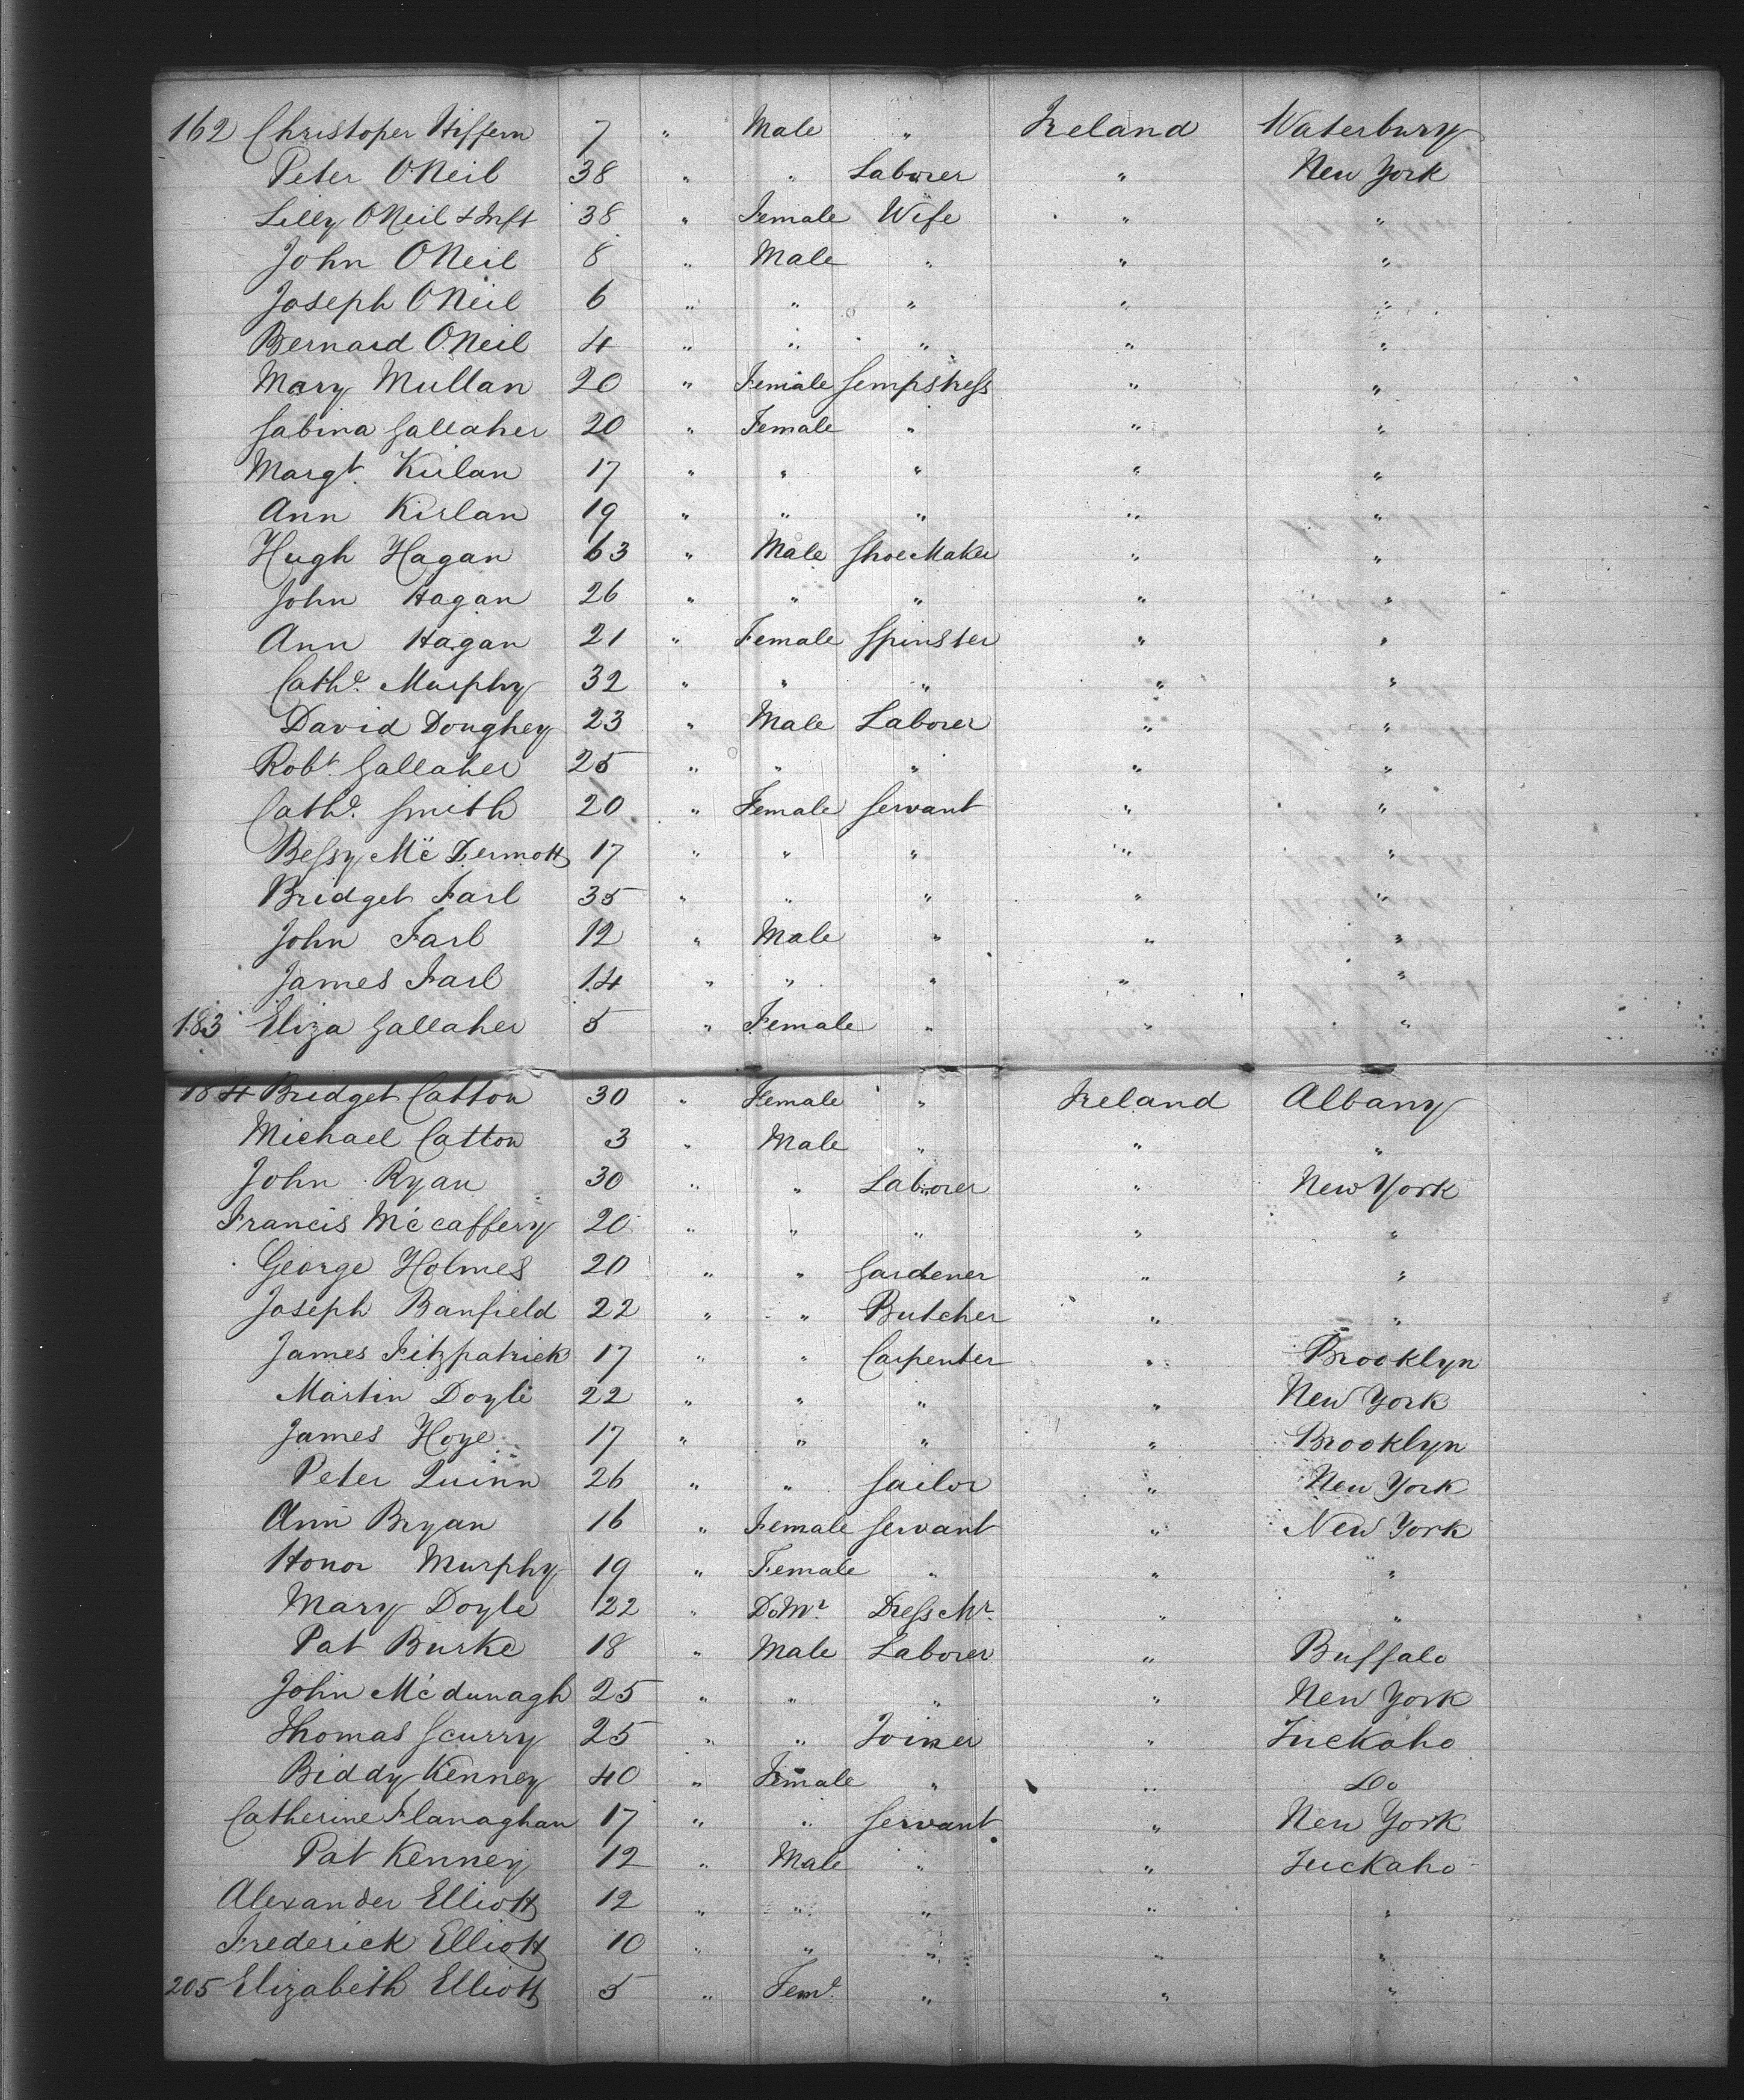 162 Christoper Hiffern 7 " Male " Ireland Waterbury
Peter ONeil 38 " " Laborer " New York
Lilly ONeil & Inft 38 " Female Wife " "
John ONeil 8 " Male " " "
Joseph ONeil 6 " " " " "
Bernard ONeil 4 " " " " "
Mary Mullan 20 " Female Sempstress " "
Sabina Gallaher 20 " Female " " "
Margt. Kirlan 17 " " " " "
Ann Kirlan 19 " " " " "
Hugh Hagan 63 " Male Shoe Maker " "
John Hagan 26 " " " " "
Ann Hagan 21 " Female Spinster " "
Cathe. Murphy 32 " " " " "
David Doughey 23 " Male Laborer " "
Robt. Gallaher 25 " " " " "
Cathe. Smith 20 " Female Servant " "
Bessy Mc Dermott 17 " " " " "
Bridget Farl 35 " " " " "
John Farl 12 " Male " " "
James Farl 14 " " " " "
183 Eliza Gallaher 5 " Female " " "
184 Bridget Catton 30 " Female " Ireland Albany
Michael Catton 3 " Male " " "
John Ryan 30 " " Laborer " New York
Francis Mc caffery 20 " " " " "
George Holmes 20 " " Gardener " "
Joseph Banfield 22 " " Butcher " "
James Fitzpatrick 17 " " Carpenter " Brooklyn
Martin Doyle 22 " " " " New York
James Hoye 17 " " " " Brooklyn
Peter Quinn 26 " " Sailor " New York
Ann Bryan 16 " Female Servant " New York
Honor Murphy 19 " Female " " "
Mary Doyle 22 " Dress Mr. " "
Pat Burke 18 " Male Laborer " Buffalo
John Mc dunagh 25 " " " " New York
Thomas Scurry 25 " " Joiner " Tuckaho
Biddy Kenney 40 " Female " " Do
Catherine Flanaghan 17 " " Servant " New York
Pat Kenney 12 " Male " " Tuckaho
Alexander Elliott 12 " " " " "
Frederick Elliott 10 " " " " "
205 Elizabeth Elliott 5 " Feme. " " "